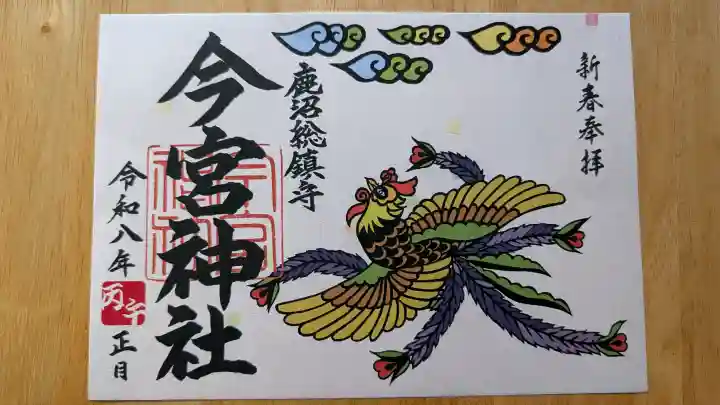 新春奉拝
鹿沼総鎮守
今宮神社
令和八年
丙午
正月